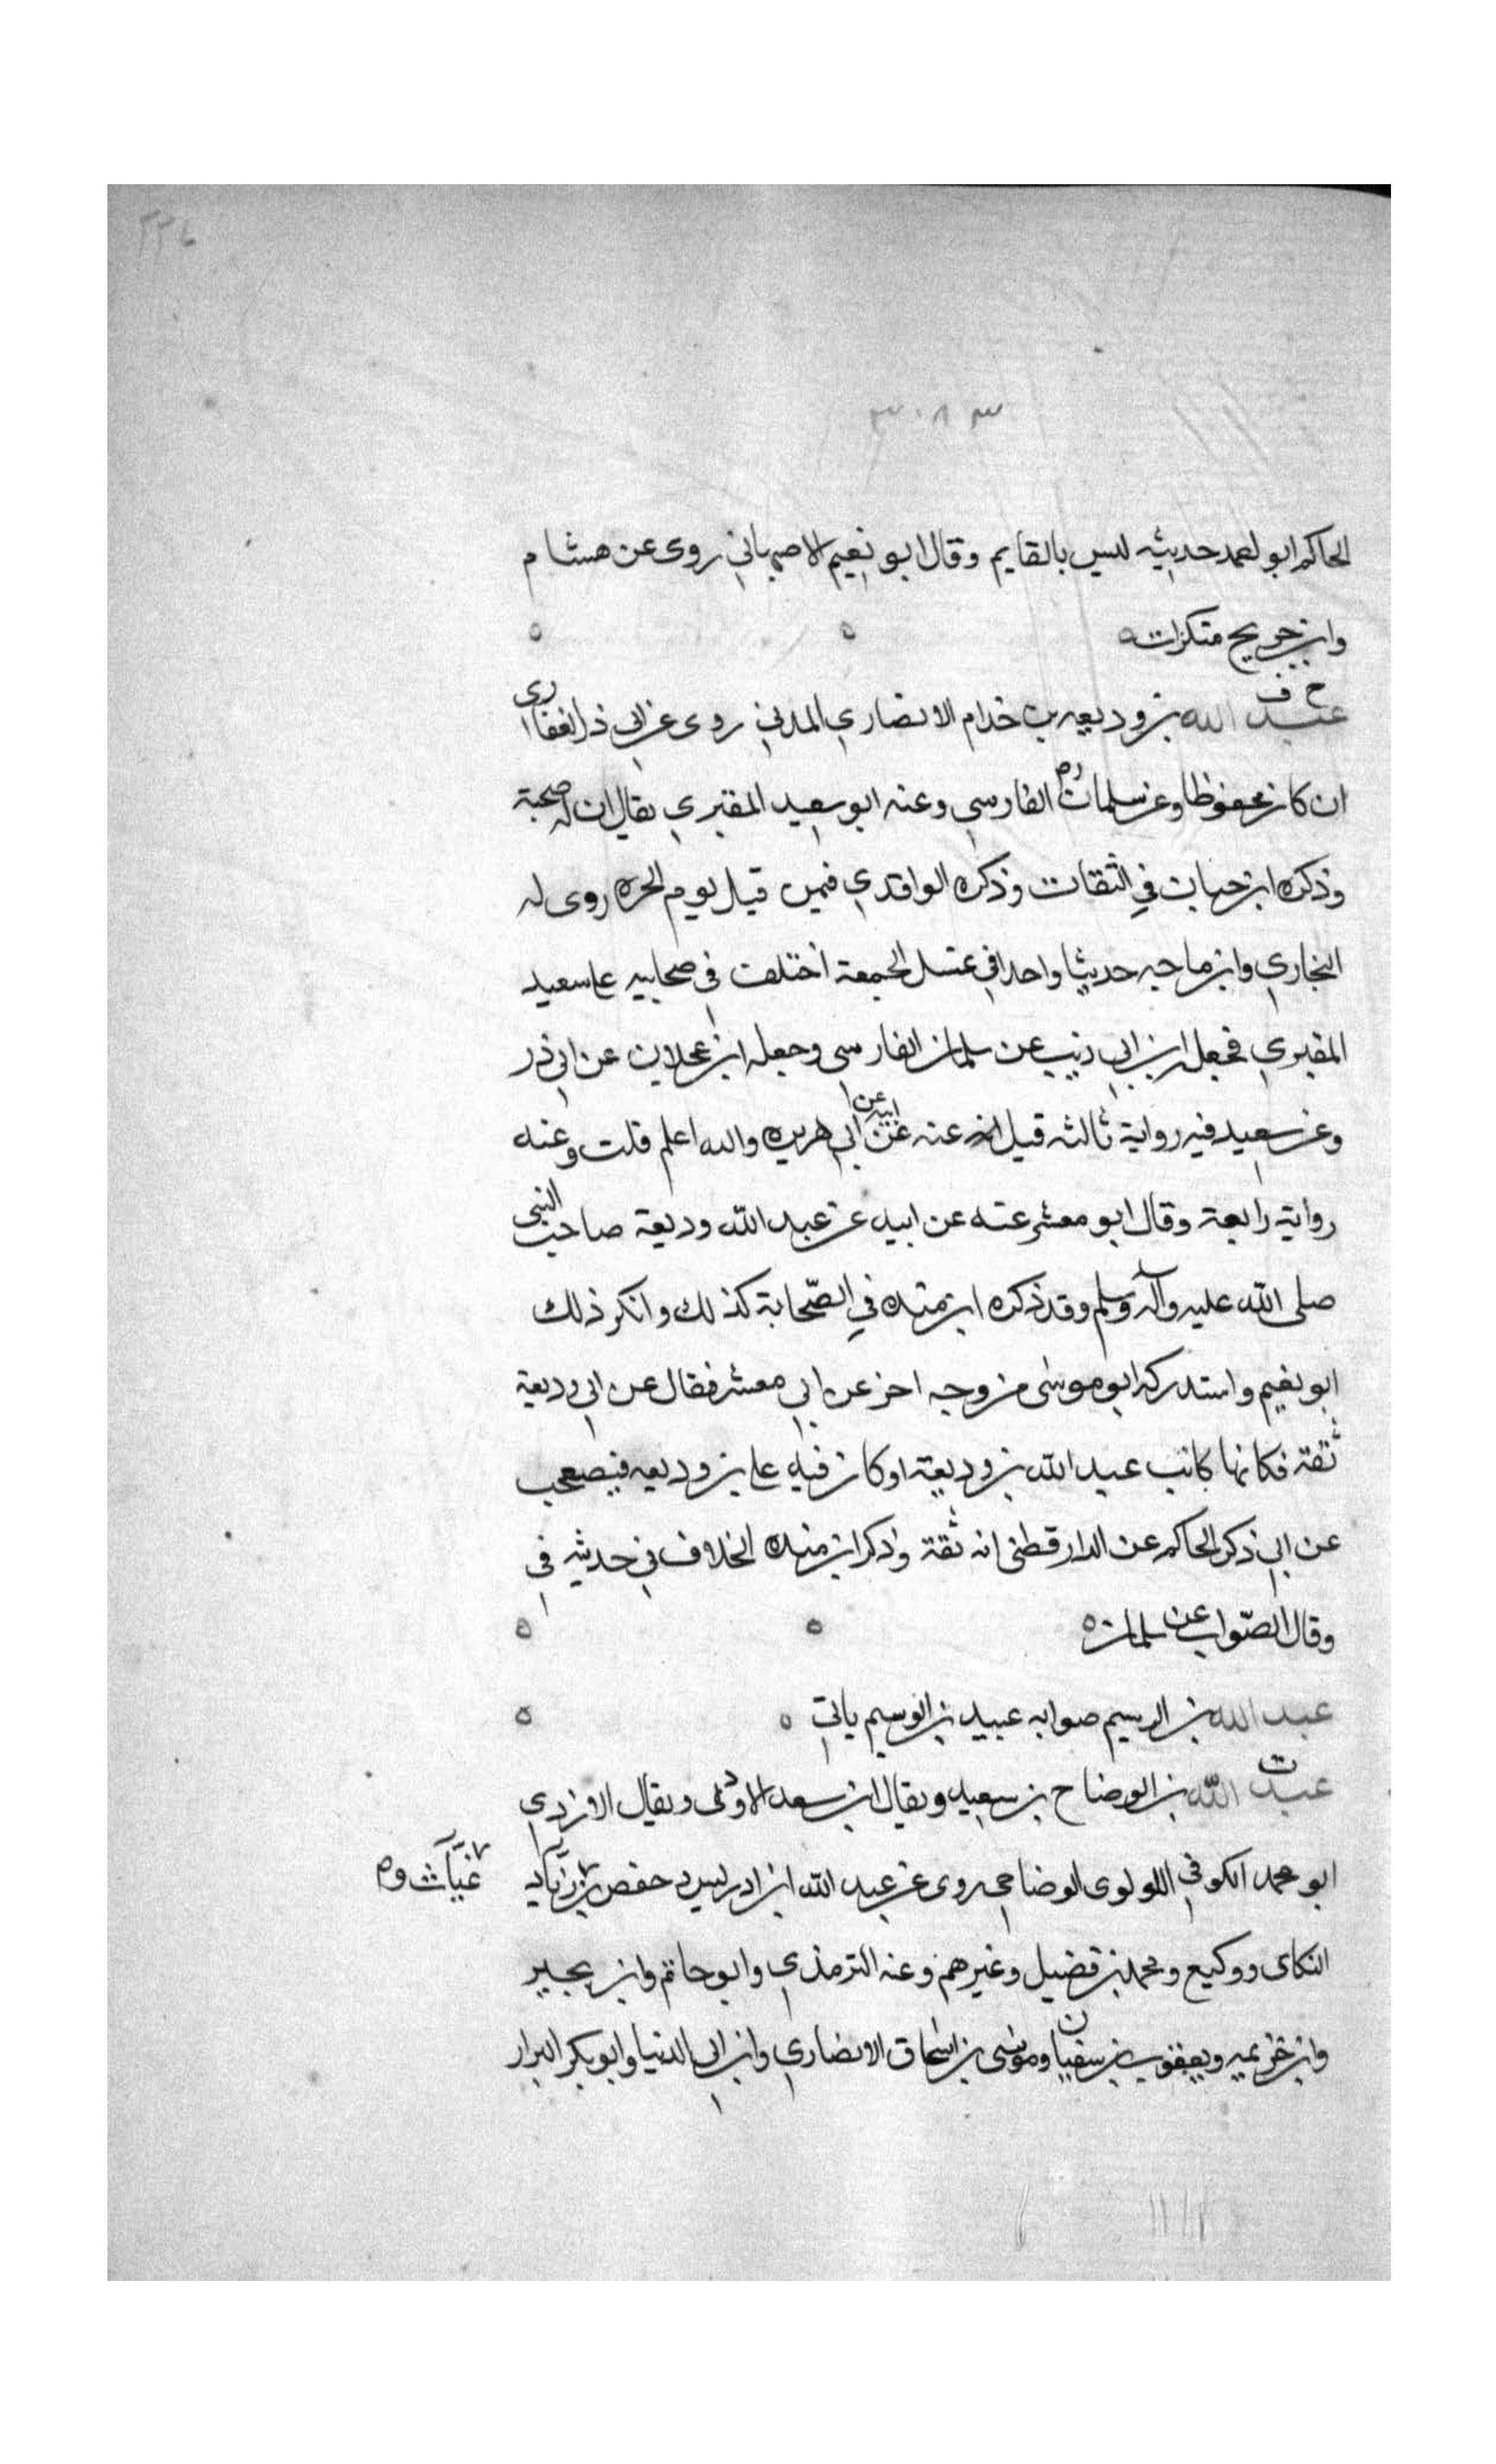 ٢٢٤
٣٠٨٣
الحاكم ابو احمد حديثه ليس بالقايم وقال ابو نعيم الاصبهاني روى عن هشام
وابن جريج منكرات ه ه ه
خ ق
عبد الله بن وديعه بن خدام الانصاري المدني روى عن ابي ذر الغفاري
ان كان محفوظا وعن سلمان رض الفارسي وعنه ابو سعيد المقبري يقال ان له صحبة
وذكره ابن حبان في الثقات وذكره الواقدي فيمن قتل يوم الحره روى له
البخاري وابن ماجه حديثا واحدا في غسل الجمعة اختلف في صحابيه على سعيد
المقبري فجعله ابن ابي ذئب عن سلمان الفارسي وجعله ابن عجلان عن ابي ذر
وعن سعيد فيه رواية ثالثه قيل عنه عن ابيه عن ابي هريره والله اعلم قلت وعنه
رواية رابعة وقال ابو معشر عنه عن ابيه عن عبد الله وديعة صاحب النبي
صلى الله عليه وآله وسلم وقد ذكره ابن منده في الصّحابة كذلك وانكر ذلك
ابو نعيم واستدركه ابو موسى من وجه اخر عن ابي معشر فقال عن ابي وديعة
ثقة فكانها كانت عبد الله بن وديعة او كان فيه على بن وديعه فيصحب
عن ابي ذكر الحاكم عن الدارقطني انه ثقة وذكر ابن منده الخلاف في حديثه في
وقال الصّواب عن سلمان ه ه ه
عبد الله بن الوسيم صوابه عبيد بن الوسيم ياتي ه ه
ت
عبد الله بن الوضاح بن سعيد ويقال ابن سعد الاودى ويقال الازدي
ابو محمد الكوفي اللولوى الوضاحي روى عن عبد الله ابن ادريس وحفص بن زياد غياث و
البكاى ووكيع ومحمد بن فضيل وغيرهم وعنه الترمذي وابو حاتم وابن بجير
وابن خزيمه ويعقوب بن سفيان وموسى بن اسحاق الانصاري وابن ابي الدنيا وابو بكر البزار